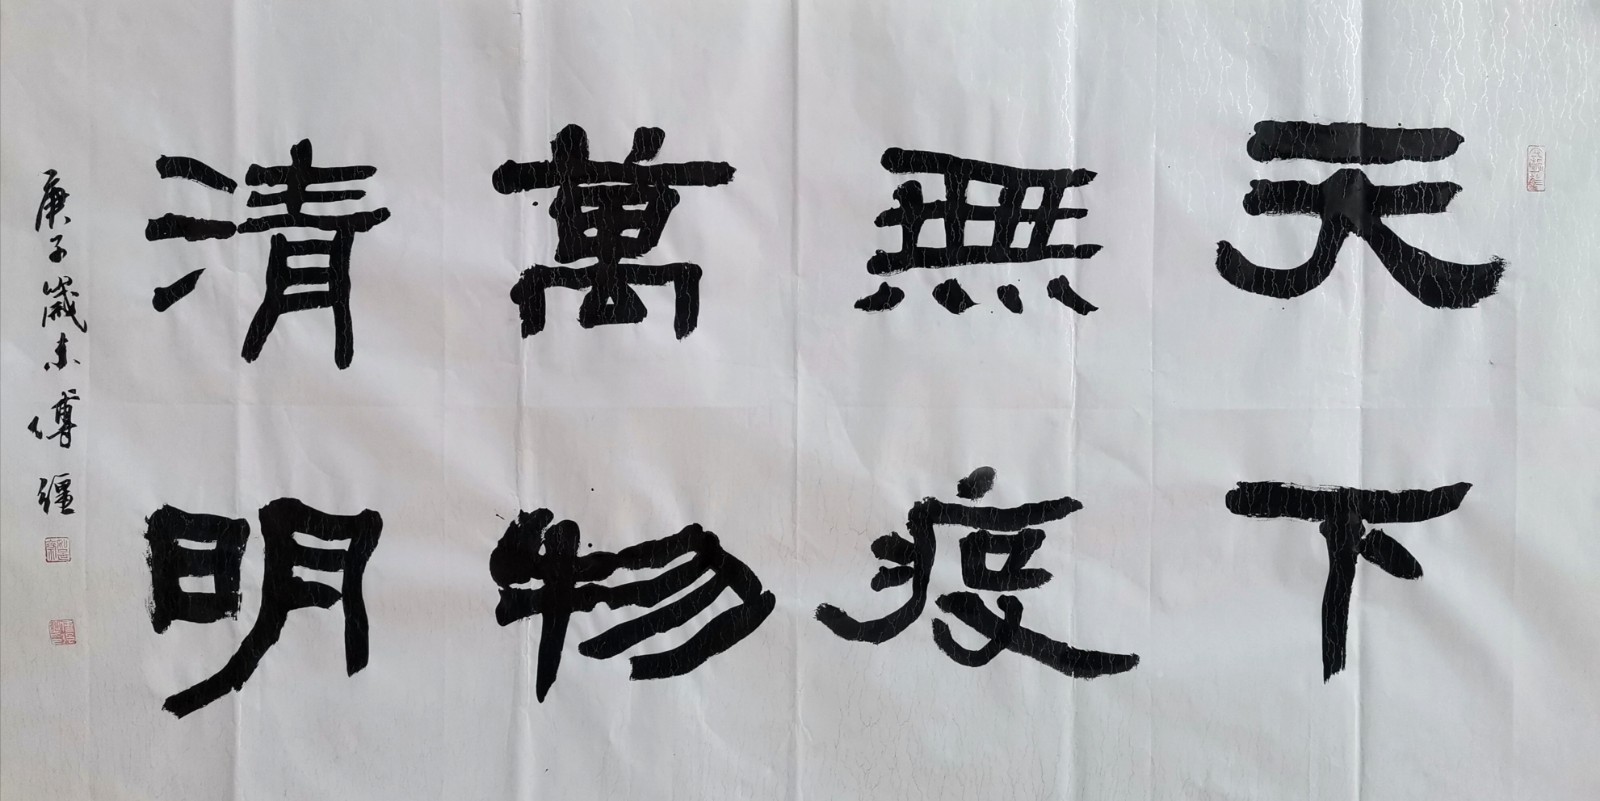 天下
無疫
萬物
清明
庚子歲末傅疆